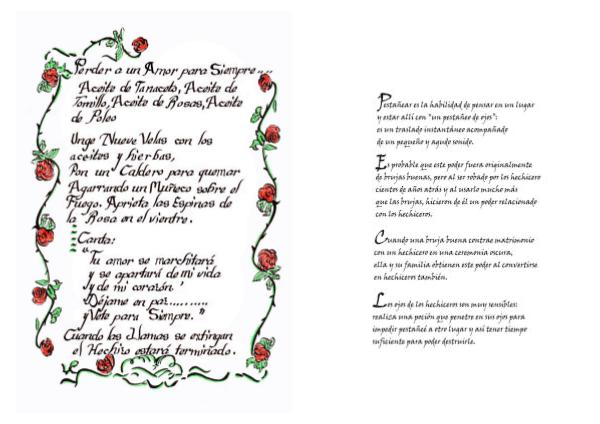 Perder a un Amor para Siempre....
Aceite de Tanaceto, Aceite de
Tomillo, Aceite de Rosas, Aceite
de Poleo
Unge Nueve Velas con los
aceites y hierbas,
Pon un Caldero para quemar
Agarrando un Muñeco sobre el
Fuego. Aprieta las Espinas de
la Rosa en el vientre.
Canta:
"Tu amor se marchitará
y se apartará de mi vida
y de mi corazón'
Déjame en paz.........
y Vete para Siempre."
Cuando las Llamas se extingan
el Hechizo estará terminado.
Pestañear es la habilidad de pensar en un lugar
y estar allí con "un pestañeo de ojos":
es un traslado instantáneo acompañado
de un pequeño y agudo sonido.
Es probable que este poder fuera originalmente
de brujas buenas, pero al ser robado por los hechicero
cientos de años atrás y al usarlo mucho más
que las brujas, hicieron de él un poder relacionado
con los hechiceros.
Cuando una bruja buena contrae matrimonio
con un hechicero en una ceremonia oscura,
ella y su familia obtienen este poder al convertirse
en hechiceros también.
Los ojos de los hechiceros son muy sensibles:
realiza una poción que penetre en sus ojos para
impedir pestañeé a otro lugar y así tener tiempo
suficiente para poder destruirle.